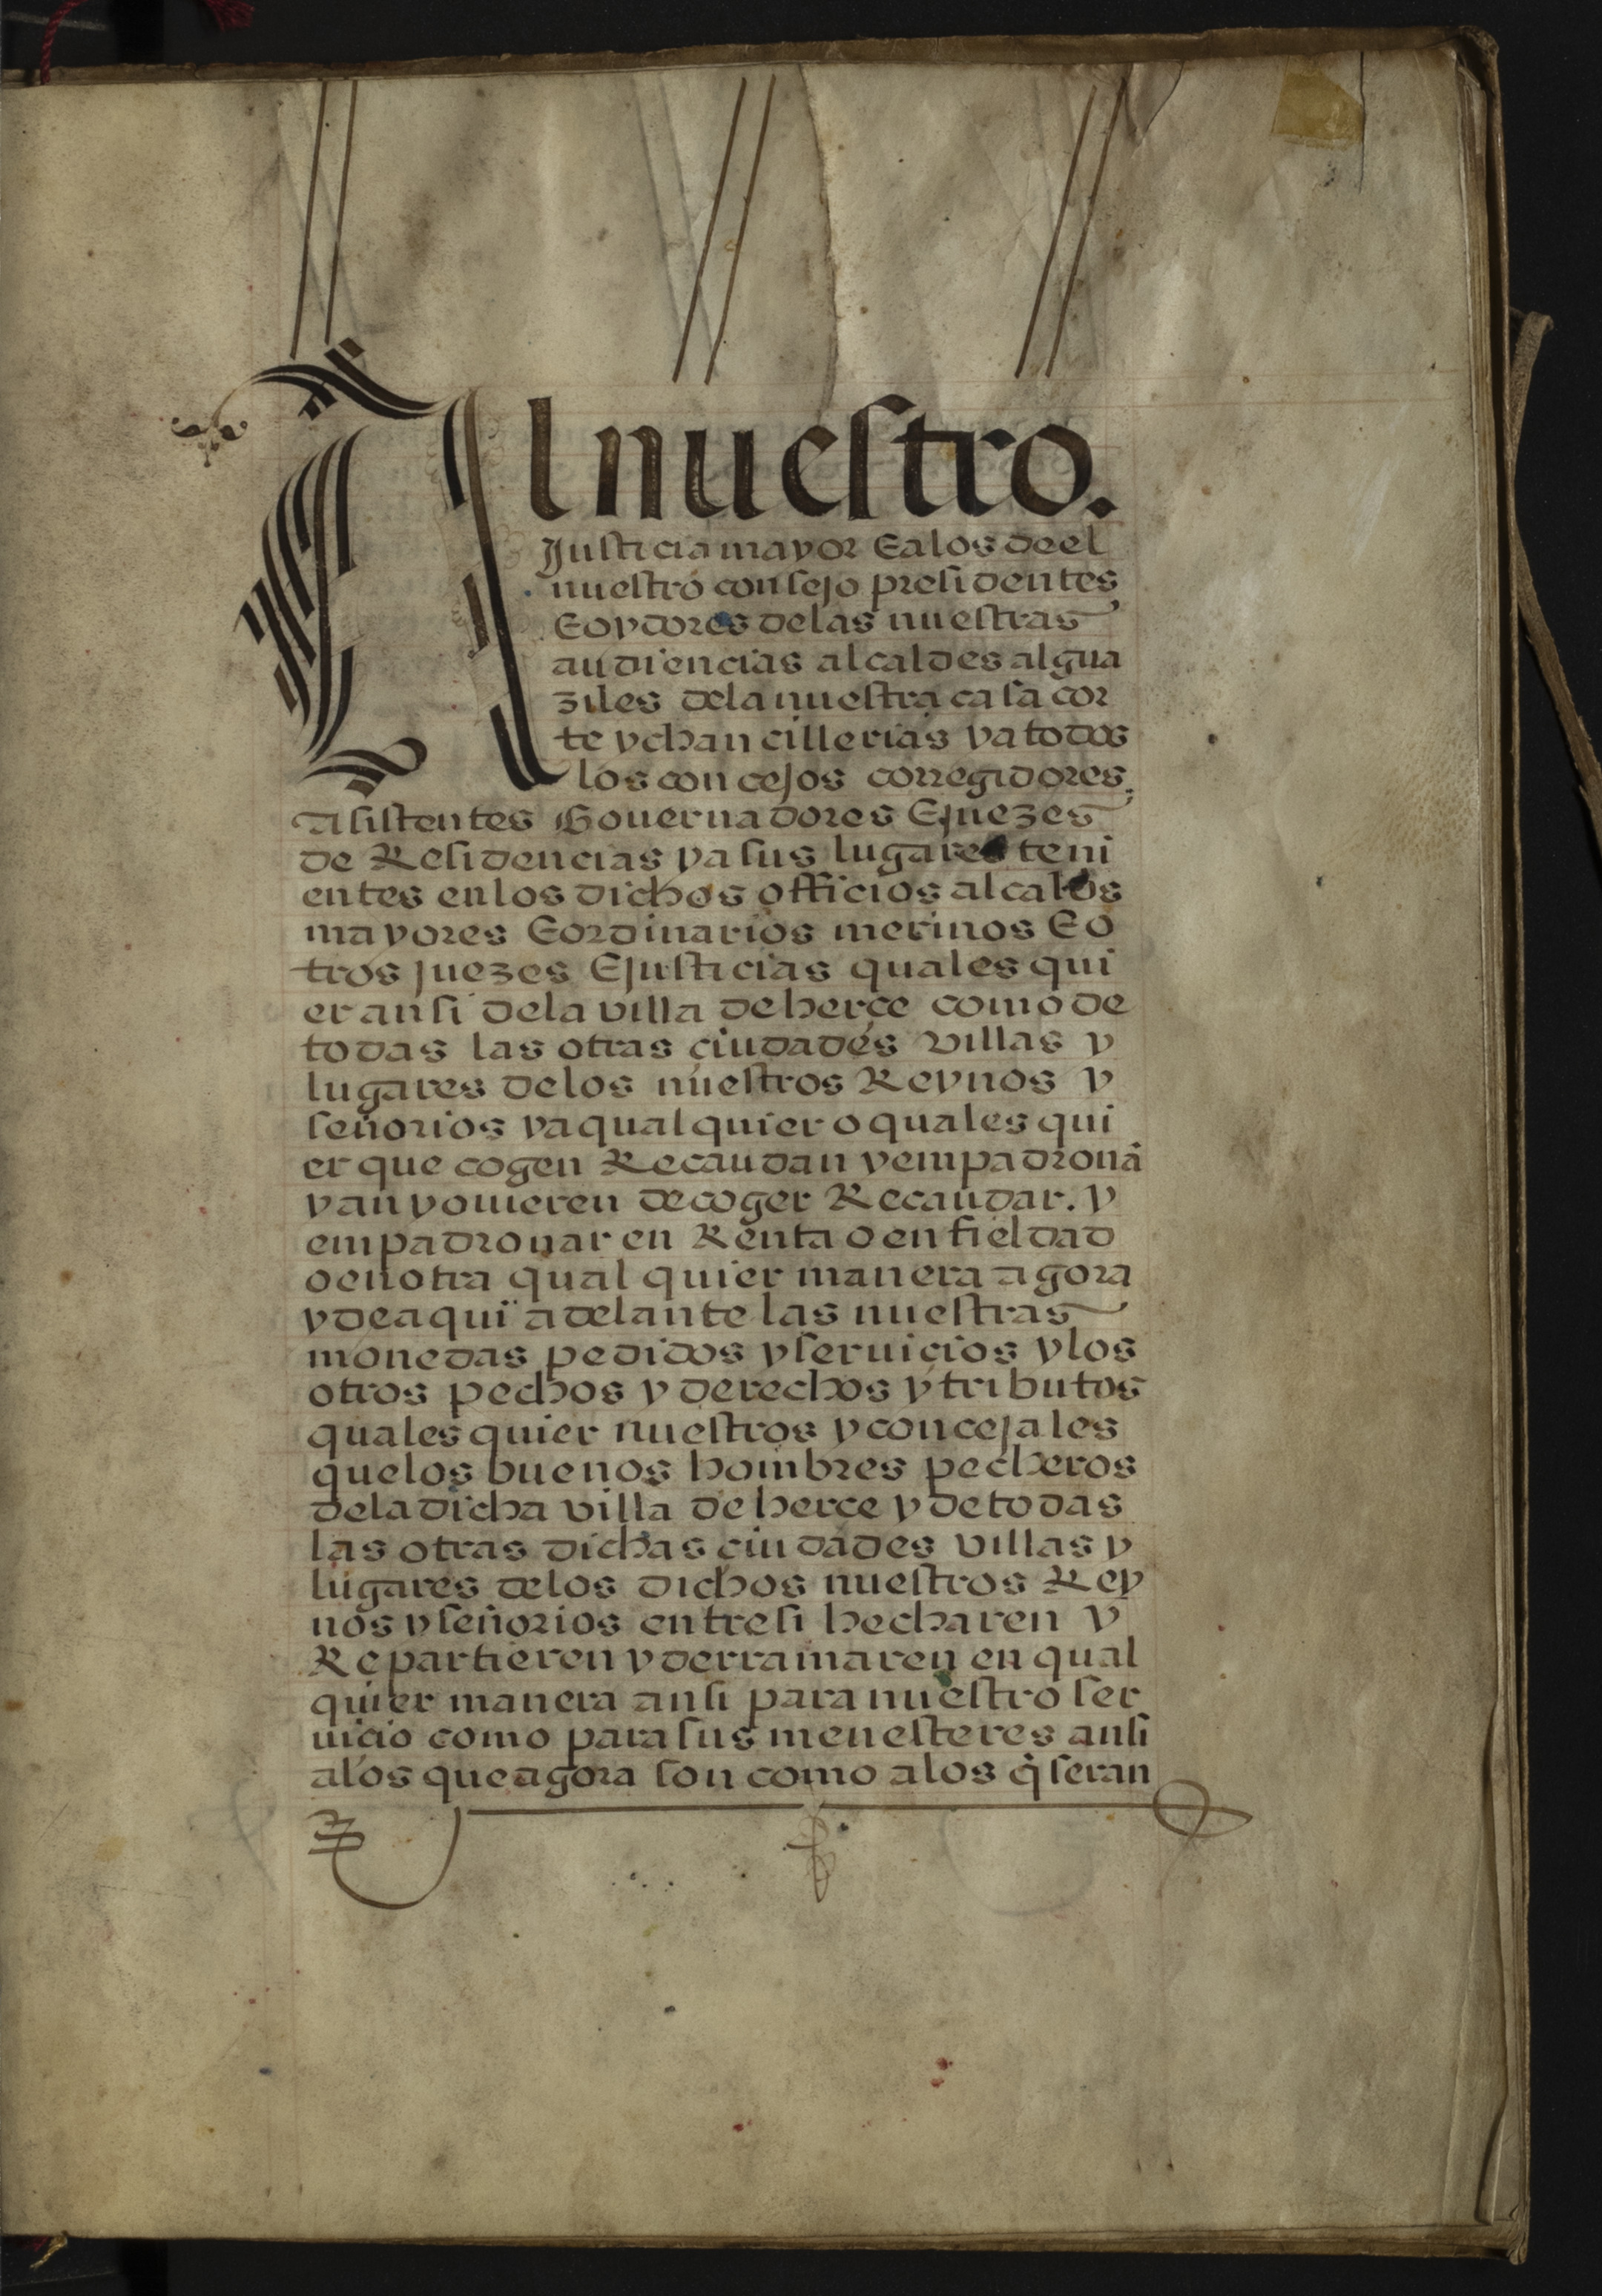 Al nuestro.
Justicia mayor E a los de el
nuestro consejo presidentes
E oydores de las nuestras
audiencias alcaldes algua
ziles de la nuestra casa cor
te y chancillerias y a todos
los concejos corregidores
asistentes Gouernadores E juezes
de Residencias y a sus lugares teni
entes en los dichos officios alcaldes
mayores E ordinarios merinos E o
tros juezes E justicias quales qui
er ansi de la villa de herçe como de
todas las otras çiudades villas y
lugares de los nuestros Reynos y
señorios y a qual quier o quales qui
er que cogen Recaudan y empadronã
y an y ouieren de coger Recaudar. y
empadronar en Renta o en fieldad
o en otra qual quier manera agora
y de aqui adelante las nuestras
monedas pedidos y seruicios y los
otros pechos y derechos y tributos
quales quier nuestros y concejales
que los buenos hombres pecheros
de la dicha villa de herce y de todas
las otras dichas çiudades villas y
lugares de los dichos nuestros Rey
nos y señorios entre si hecharen y
Repartieren y derramaren en qual
quier manera ansi para nuestro ser
uicio como para sus menesteres ansi
a los que agora son como a los q̃ seran